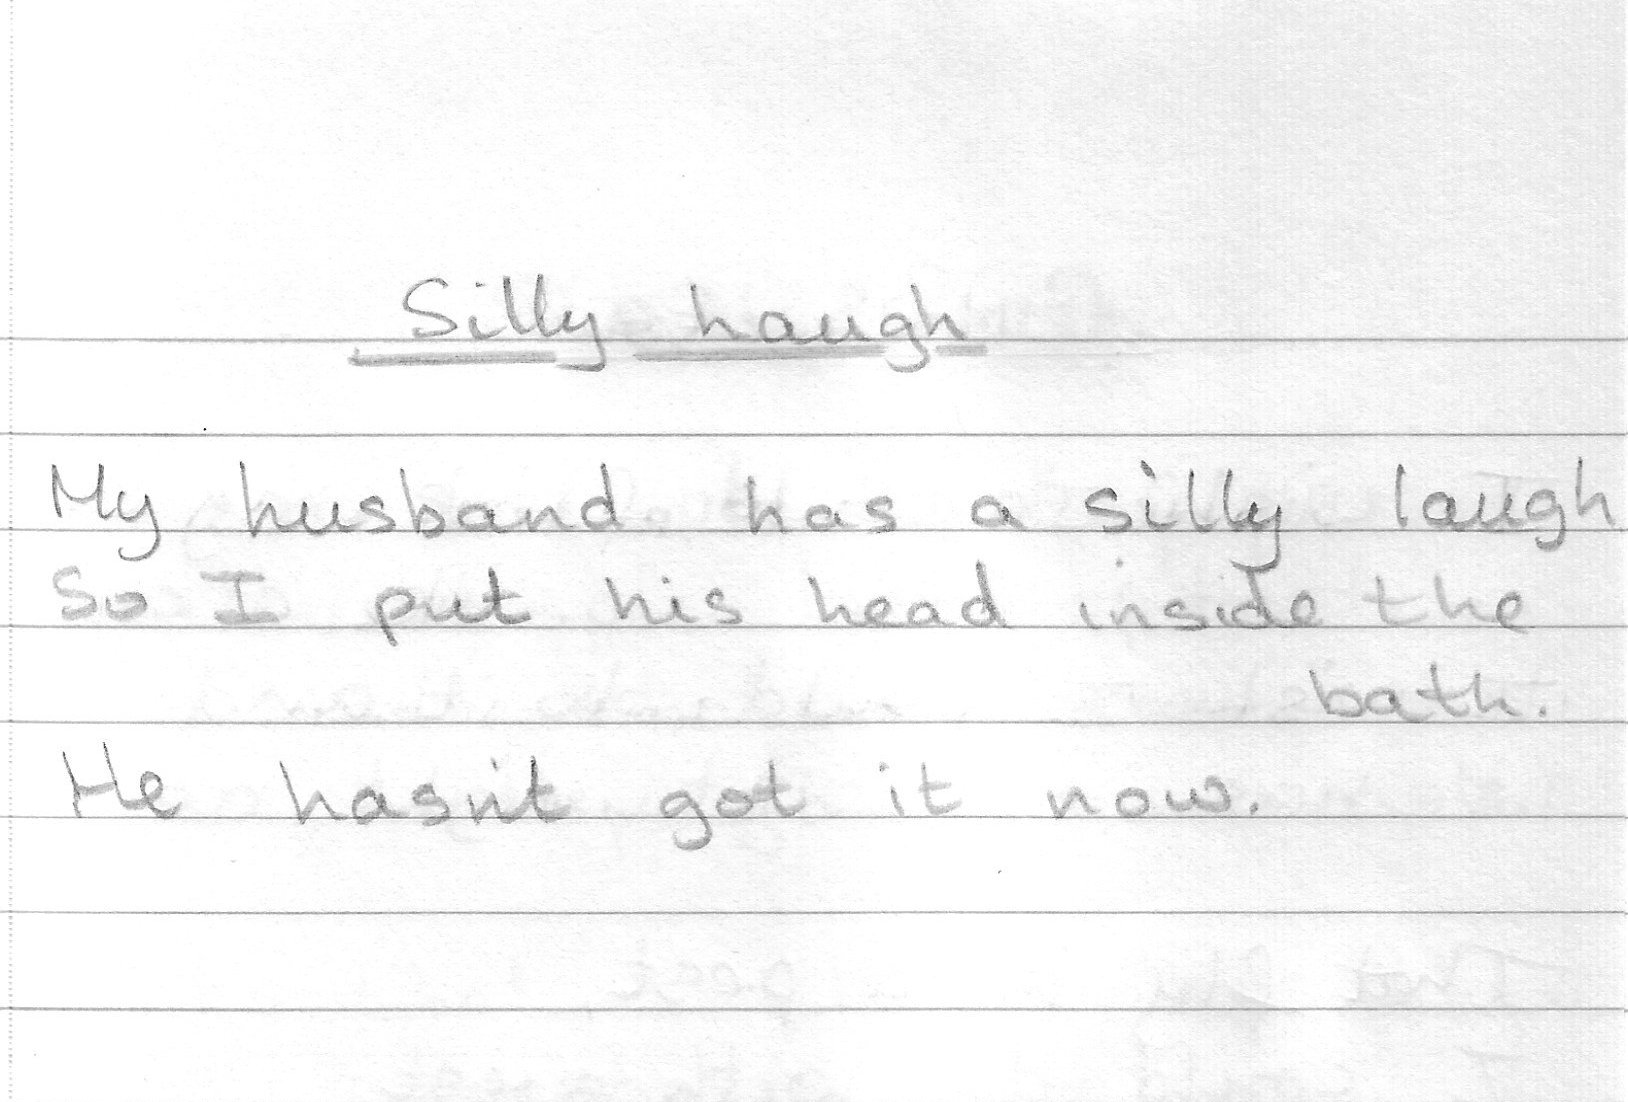 Silly haugh
My husband has a silly laugh
So I put his head inside the
bath.
He hasn't got it now.